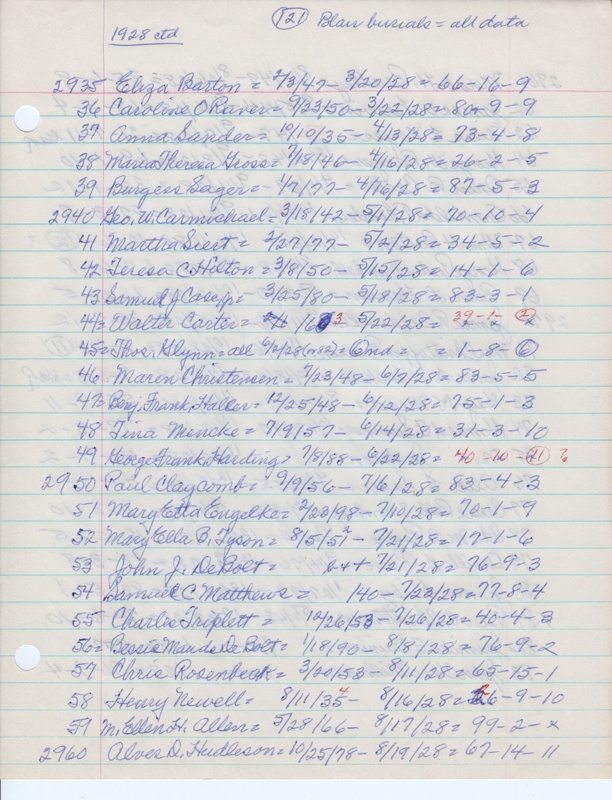 (121) Blair burials = all data
1928 ctd
2935 Eliza Barton = 2/3/47 - 3/20/28 = 66-16-9
36 Caroline O Raver = 9/23/50 - 3/22/28 = 80-9-9
37 Anna Sander = 10/10/35 - 4/13/28 = 73-4-8
38 Maria Theresa Grose = 7/18/46 - 4/16/28 = 26-2-5
39 Burgess Sager = 4/7/77 - 4/16/28 = 87-5-3
2940 Geo. W. Carmichael = 3/18/42 - 5/1/28 = 70-10-4
41 Martha Siert = 2/27/77 - 5/2/28 = 34-5-2
42 Teresa C. Hilton = 3/8/50 - 5/15/28 = 14-1-6
43 Samuel J Case Jr = 3/25/80 - 5/18/28 = 83-3-1
44 = Walter Carter = 3 5/22/28 = 39-1-(2)
45 = Thos. Glynn = all 6/2/28 = = 1-8-(6)
46 Maren Christensen = 7/23/48 - 6/7/28 = 83-5-5
47 = Benj. Frank. Haller = 12/25/48 - 6/12/28 = 75-1-3
48 Tina Mencke = 7/9/57 - 6/14/28 = 31-3-10
49 George Frank. Harding = 7/8/88 - 6/22/28 = 40-10-(11) ?
2950 Paul Claycomb = 9/9/56 - 7/6/28 = 83-4-3
51 Mary Etta Engelke = 2/23/98 - 7/10/28 = 70-1-9
52 Mary Ella B. Tyson = 8/5/51 2 - 7/21/28 = 17-1-6
53 John J. DeBolt = 7/21/28 = 76-9-3
54 Samuel C Matthews = /40 - 7/23/28 = 77-8-4
55 Charles Triplett = 12/26/53 - 7/26/28 = 40-4-3
56 = Bessie Maude DeBolt = 1/18/90 - 8/8/28 = 76-9-2
57 Chris Rosenbeck = 3/20/53 - 8/11/28 = 65-15-1
58 Henry Newell = 8/11/35 4 - 8/16/28 = 26-9-10
59 M. Ellen H. Allen = 5/28/66 - 8/17/28 = 99-2-x
2960 Alves D. Hudleson = 10/25/78 - 8/19/28 = 67-14-11